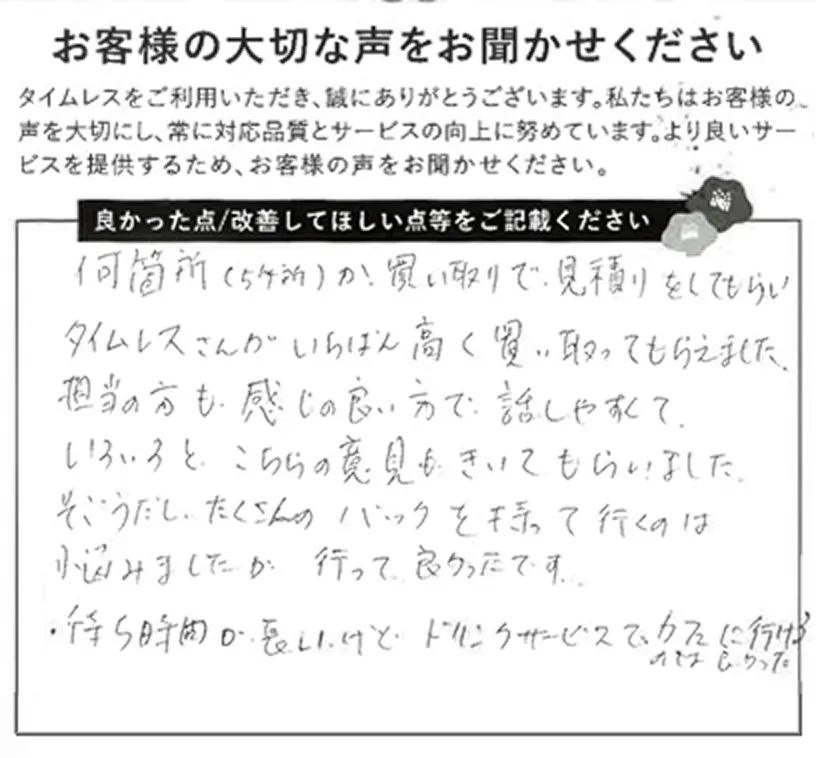 お客様の大切な声をお聞かせください
タイムレスをご利用いただき、誠にありがとうございます。私たちはお客様の
声を大切にし、常に対応品質とサービスの向上に努めています。より良いサー
ビスを提供するため、お客様の声をお聞かせください。
良かった点/改善してほしい点等をご記載ください
何箇所(5ヶ所)か、買い取りで、見積りをしてもらい
タイムレスさんがいちばん高く買い取ってもらえました。
担当の方も感じの良い方で、話しやすくて、
いろいろと、こちらの意見もきいてもらいました。
そごうだし、たくさんのバックを持って行くのは
悩みましたが 行って良かったです。
・待ち時間が長いけど ドリンクサービスで、カフェに行ける
のは良かった